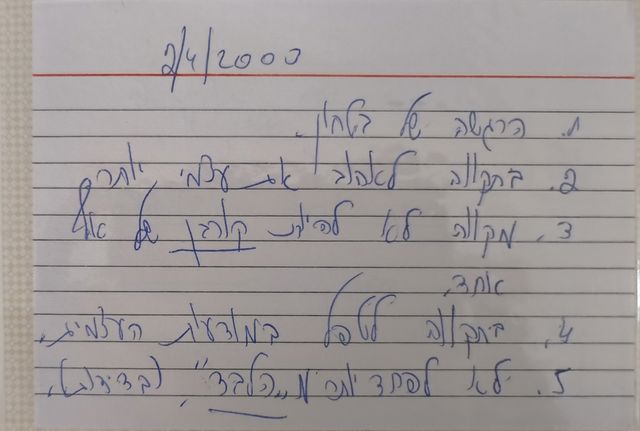 2/4/2000
1. הרגשה של בטחון.
2. בתקווה לאהוב את עצמי יותר
3. מקווה לא להיות קורבן של אף
אחד.
4. בתקווה לטפל במודעות העצמית.
5. לא לפחד יותר מ„הלבד", (בדידות).